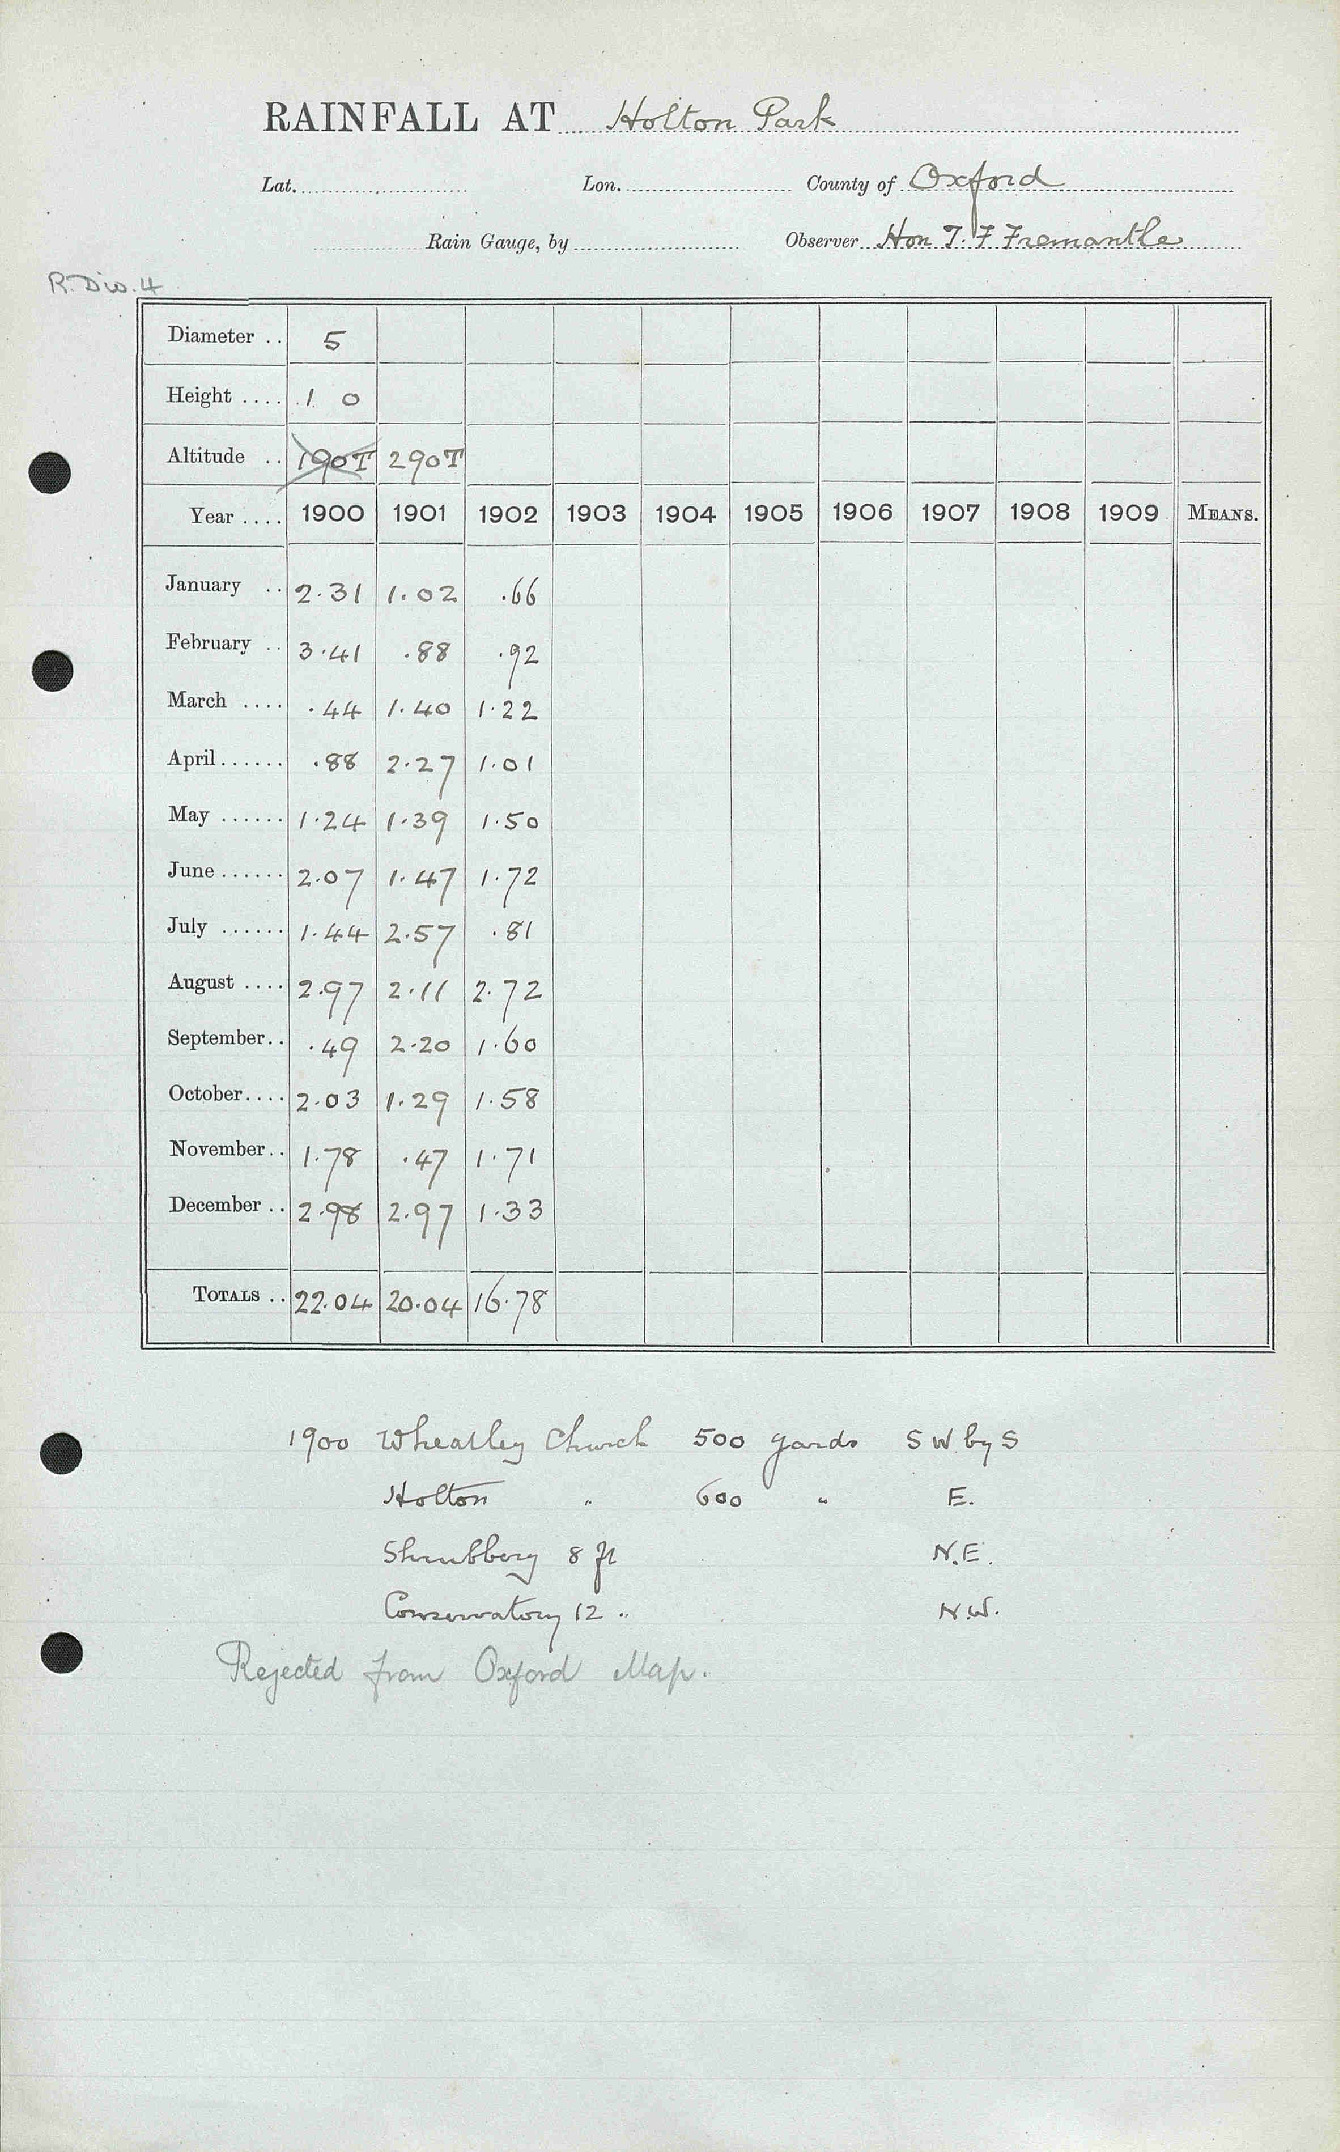 RAINFALL AT Holton Park
Lat. Lon. County of Oxford
Rain Gauge, by Observer Hon T. F Fremantle
R. Div. 4
Diameter .. 5
Height .... 1 0
Altitude .. 190T 290T
Year .... 1900 1901 1902 1903 1904 1905 1906 1907 1908 1909 MEANS.
January .. 2.31 1.02 .66
February .. 3.41 .88 .92
March .... .44 1.40 1.22
April ...... .88 2.27 1.01
May ...... 1.24 1.39 1.50
June ...... 2.07 1.47 1.72
July ...... 1.44 2.57 .81
August .... 2.97 2.11 2.72
September.. .49 2.20 1.60
October.... 2.03 1.29 1.58
November.. 1.78 .47 1.71
December .. 2.98 2.97 1.33
TOTALS .. 22.04 20.04 16.78
1900 Wheatley Church 500 yards S W by S
Holton " 600 " E.
Shrubbery 8 ft N.E.
Conservatory 12 " N.W.
Rejected from Oxford Map.